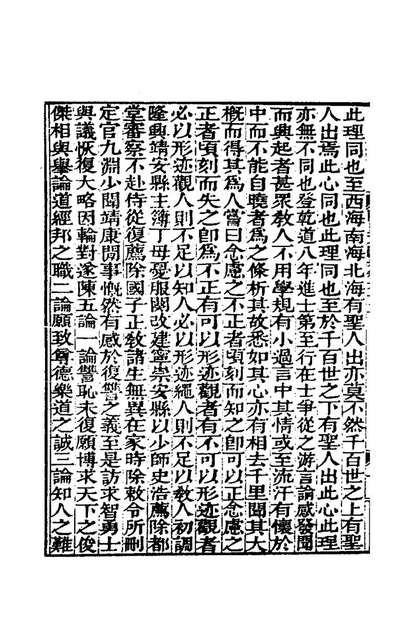 此理同也至西海南海北海有聖人出亦莫不然千百世之上有聖
人出焉此心同也此理同也至於千百世之下有聖人出此心此理
亦無不同也登乾道八年進士第至行在士爭從之游言論感發聞
而興起者甚眾教人不用學規有小過言中其情或至流汗有懷於
中而不能自曉者為之條析其故悉如其心亦有相去千里聞其大
概而得其為人嘗曰念慮之不正者頃刻而知之卽可以正念慮之
正者頃刻而失之卽為不正有可以形迹觀者有不可以形迹觀者
必以形迹觀人則不足以知人必以形迹繩人則不足以教人初調
隆興靖安縣主簿丁母憂服闋改建寧崇安縣以少師史浩薦除都
堂審察不赴侍從復薦除國子正敎諸生無異在家時除敕令所刪
定官九淵少聞靖康間事慨然有感於復讐之義至是訪求智勇士
與議恢復大略因輪對遂陳五論一論讐恥未復願博求天下之俊
傑相與舉論道經邦之職二論願致尊德樂道之誠三論知人之難